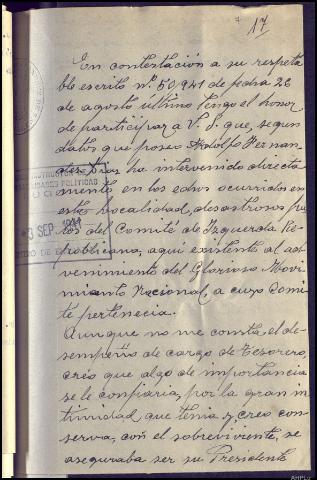 17
En contestación a su respeta
ble escrito nº. 50941 de fecha 26
de agosto último tengo el honor
de participar a V. S. que, segun
datos que poseo Adolfo Hernan
dez ha intervenido directa
mente en los echos ocurridos en
esta localidad, desastrosos
del Comité de Izquerda Re
publicana, aqui existente al ad
venimiento del Glorioso Movi
miento Nacional, a cuyo Comi
te pertenecia.
Aunque no me consta, el de
sempeño de cargo de Tesorero,
creo que algo de importancia
se le confiaria, por la gran in
timidad que tenia y, creo con
serva, con el sobreviviente, se
aseguraba ser su Presidente
INSTRUCTOR
POLITICAS
3 SEP. 1941